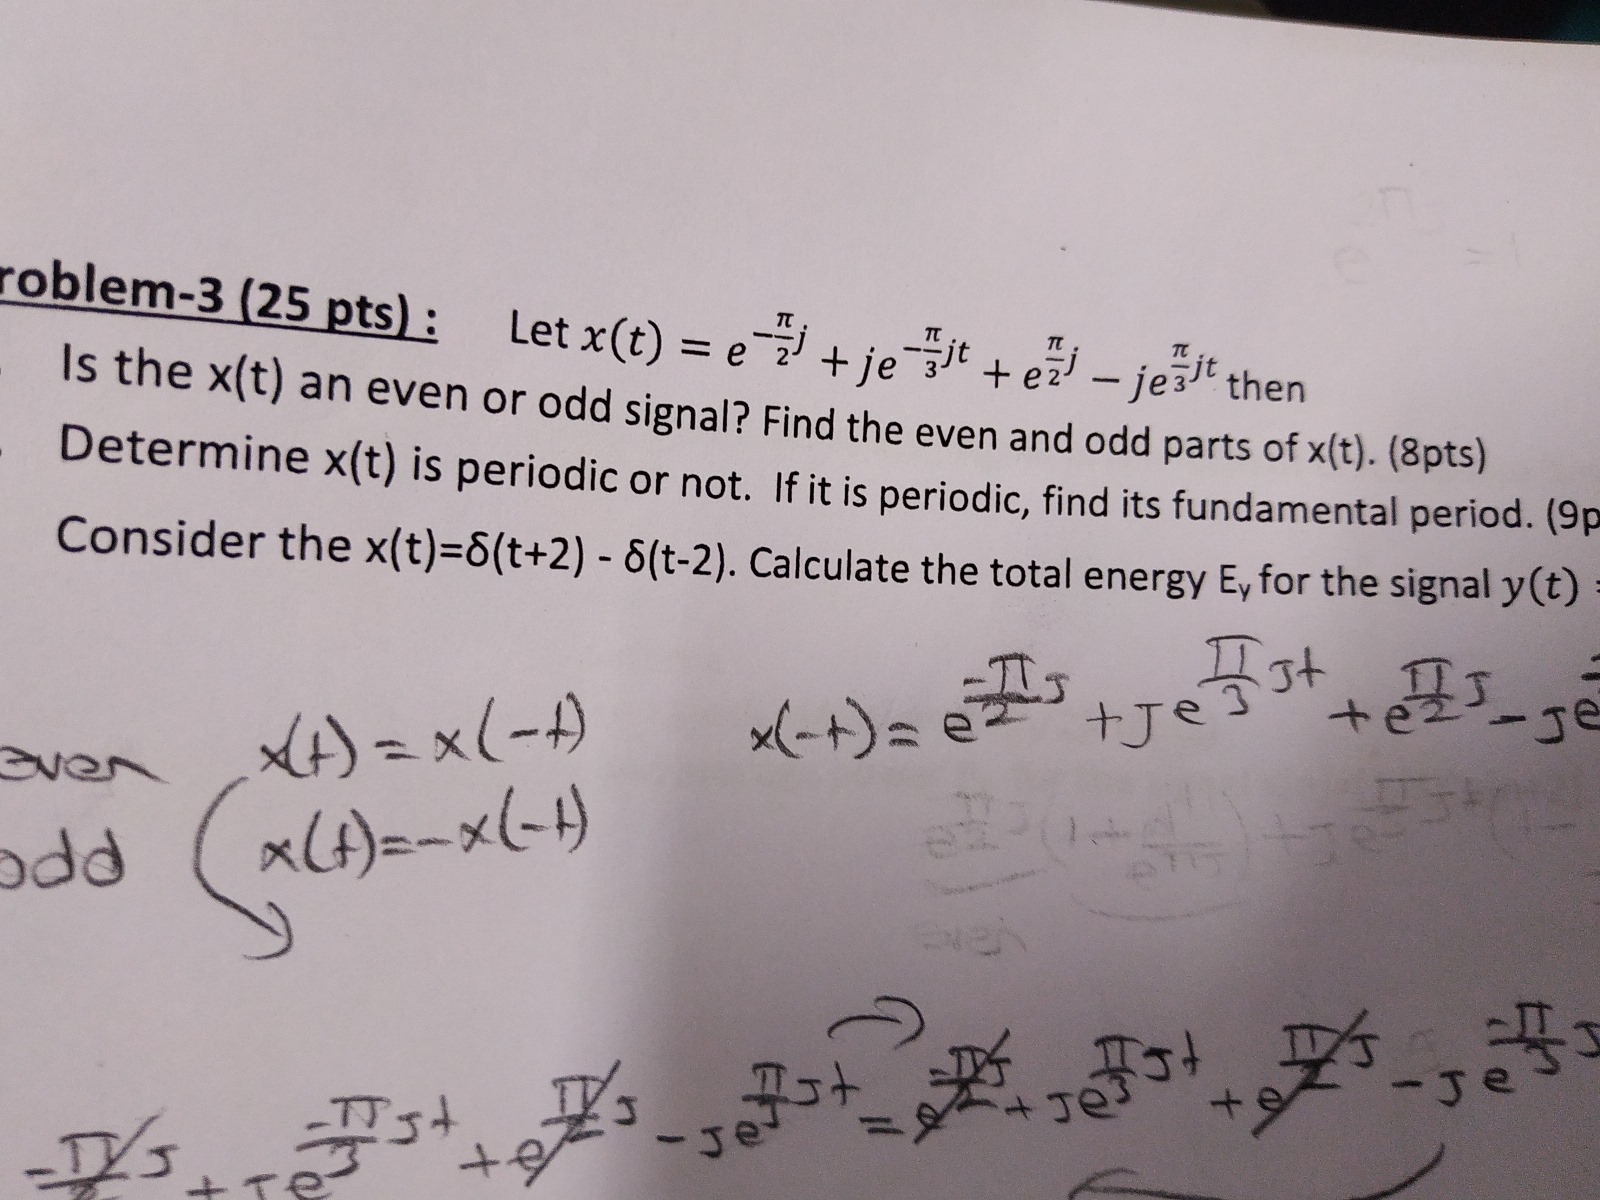 roblem-3 (25 pts) : Let x(t) = e^{-\frac{π}{2}j} + je^{-\frac{π}{3}jt} + e^{\frac{π}{2}j} − je^{\frac{π}{3}jt} then
Is the x(t) an even or odd signal? Find the even and odd parts of x(t). (8pts)
Determine x(t) is periodic or not. If it is periodic, find its fundamental period. (9p
Consider the x(t)=δ(t+2) - δ(t-2). Calculate the total energy E_y for the signal y(t) =
even x(t) = x(-t) x(-t) = e^{\frac{-π}{2}J} + Je^{\frac{π}{3}Jt} + e^{\frac{π}{2}J} - Je
odd x(t)=-x(-t)
even
\frac{-π}{2}J + Je^{\frac{-π}{3}Jt} + e^{\frac{π}{2}J} - Je^{\frac{π}{3}Jt} = e^{\frac{-π}{2}J} + Je^{\frac{π}{3}Jt} + e^{\frac{π}{2}J} - Je^{\frac{-π}{3}J